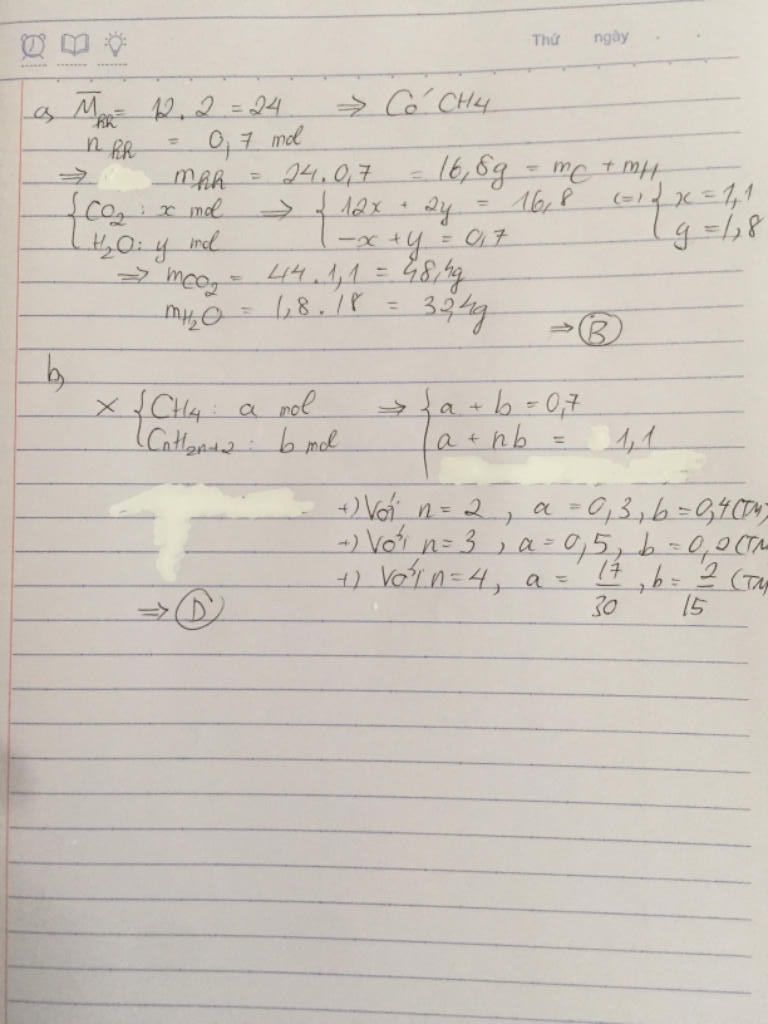 Thứ ngày
a, M̅hh = 12.2 = 24 ⇒ Có CH4
nhh = 0,7 mol
⇒ mhh = 24.0,7 = 16,8g = mC + mH
{CO2 : x mol ⇒ {12x + 2y = 16,8 (=) {x = 1,1
{H2O : y mol {-x + y = 0,7 {y = 1,8
⇒ mCO2 = 44.1,1 = 48,4g
mH2O = 1,8.18 = 32,4g
⇒ B
b,
X {CH4 : a mol ⇒ {a + b = 0,7
{CnH2n+2 : b mol {a + nb = 1,1
+) Với n = 2, a = 0,3, b = 0,4 (TM)
+) Với n = 3, a = 0,5, b = 0,2 (TM
+) Với n = 4, a = 17/30, b = 2/15 (TM
⇒ D